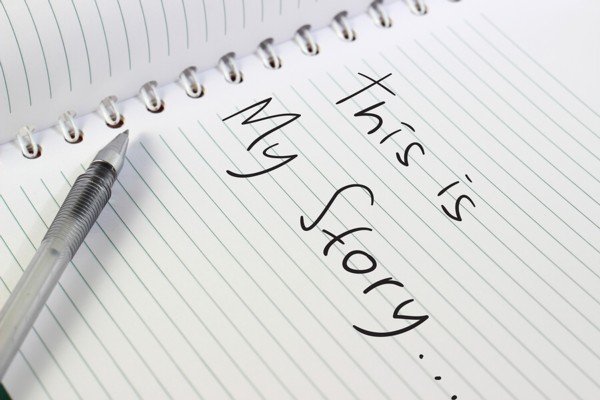 This is
My Story...